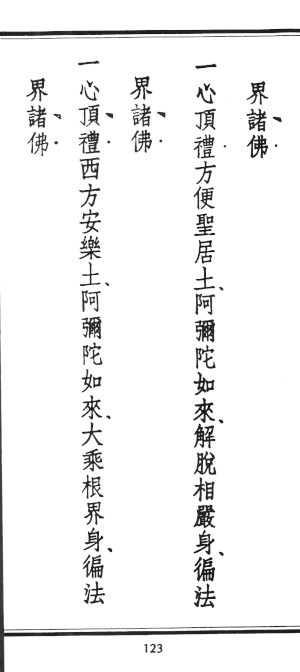 界諸佛
一心頂禮方便聖居土、阿彌陀如來、解脫相嚴身、徧法
界諸佛
一心頂禮西方安樂土、阿彌陀如來、大乘根界身、徧法
界諸佛
123